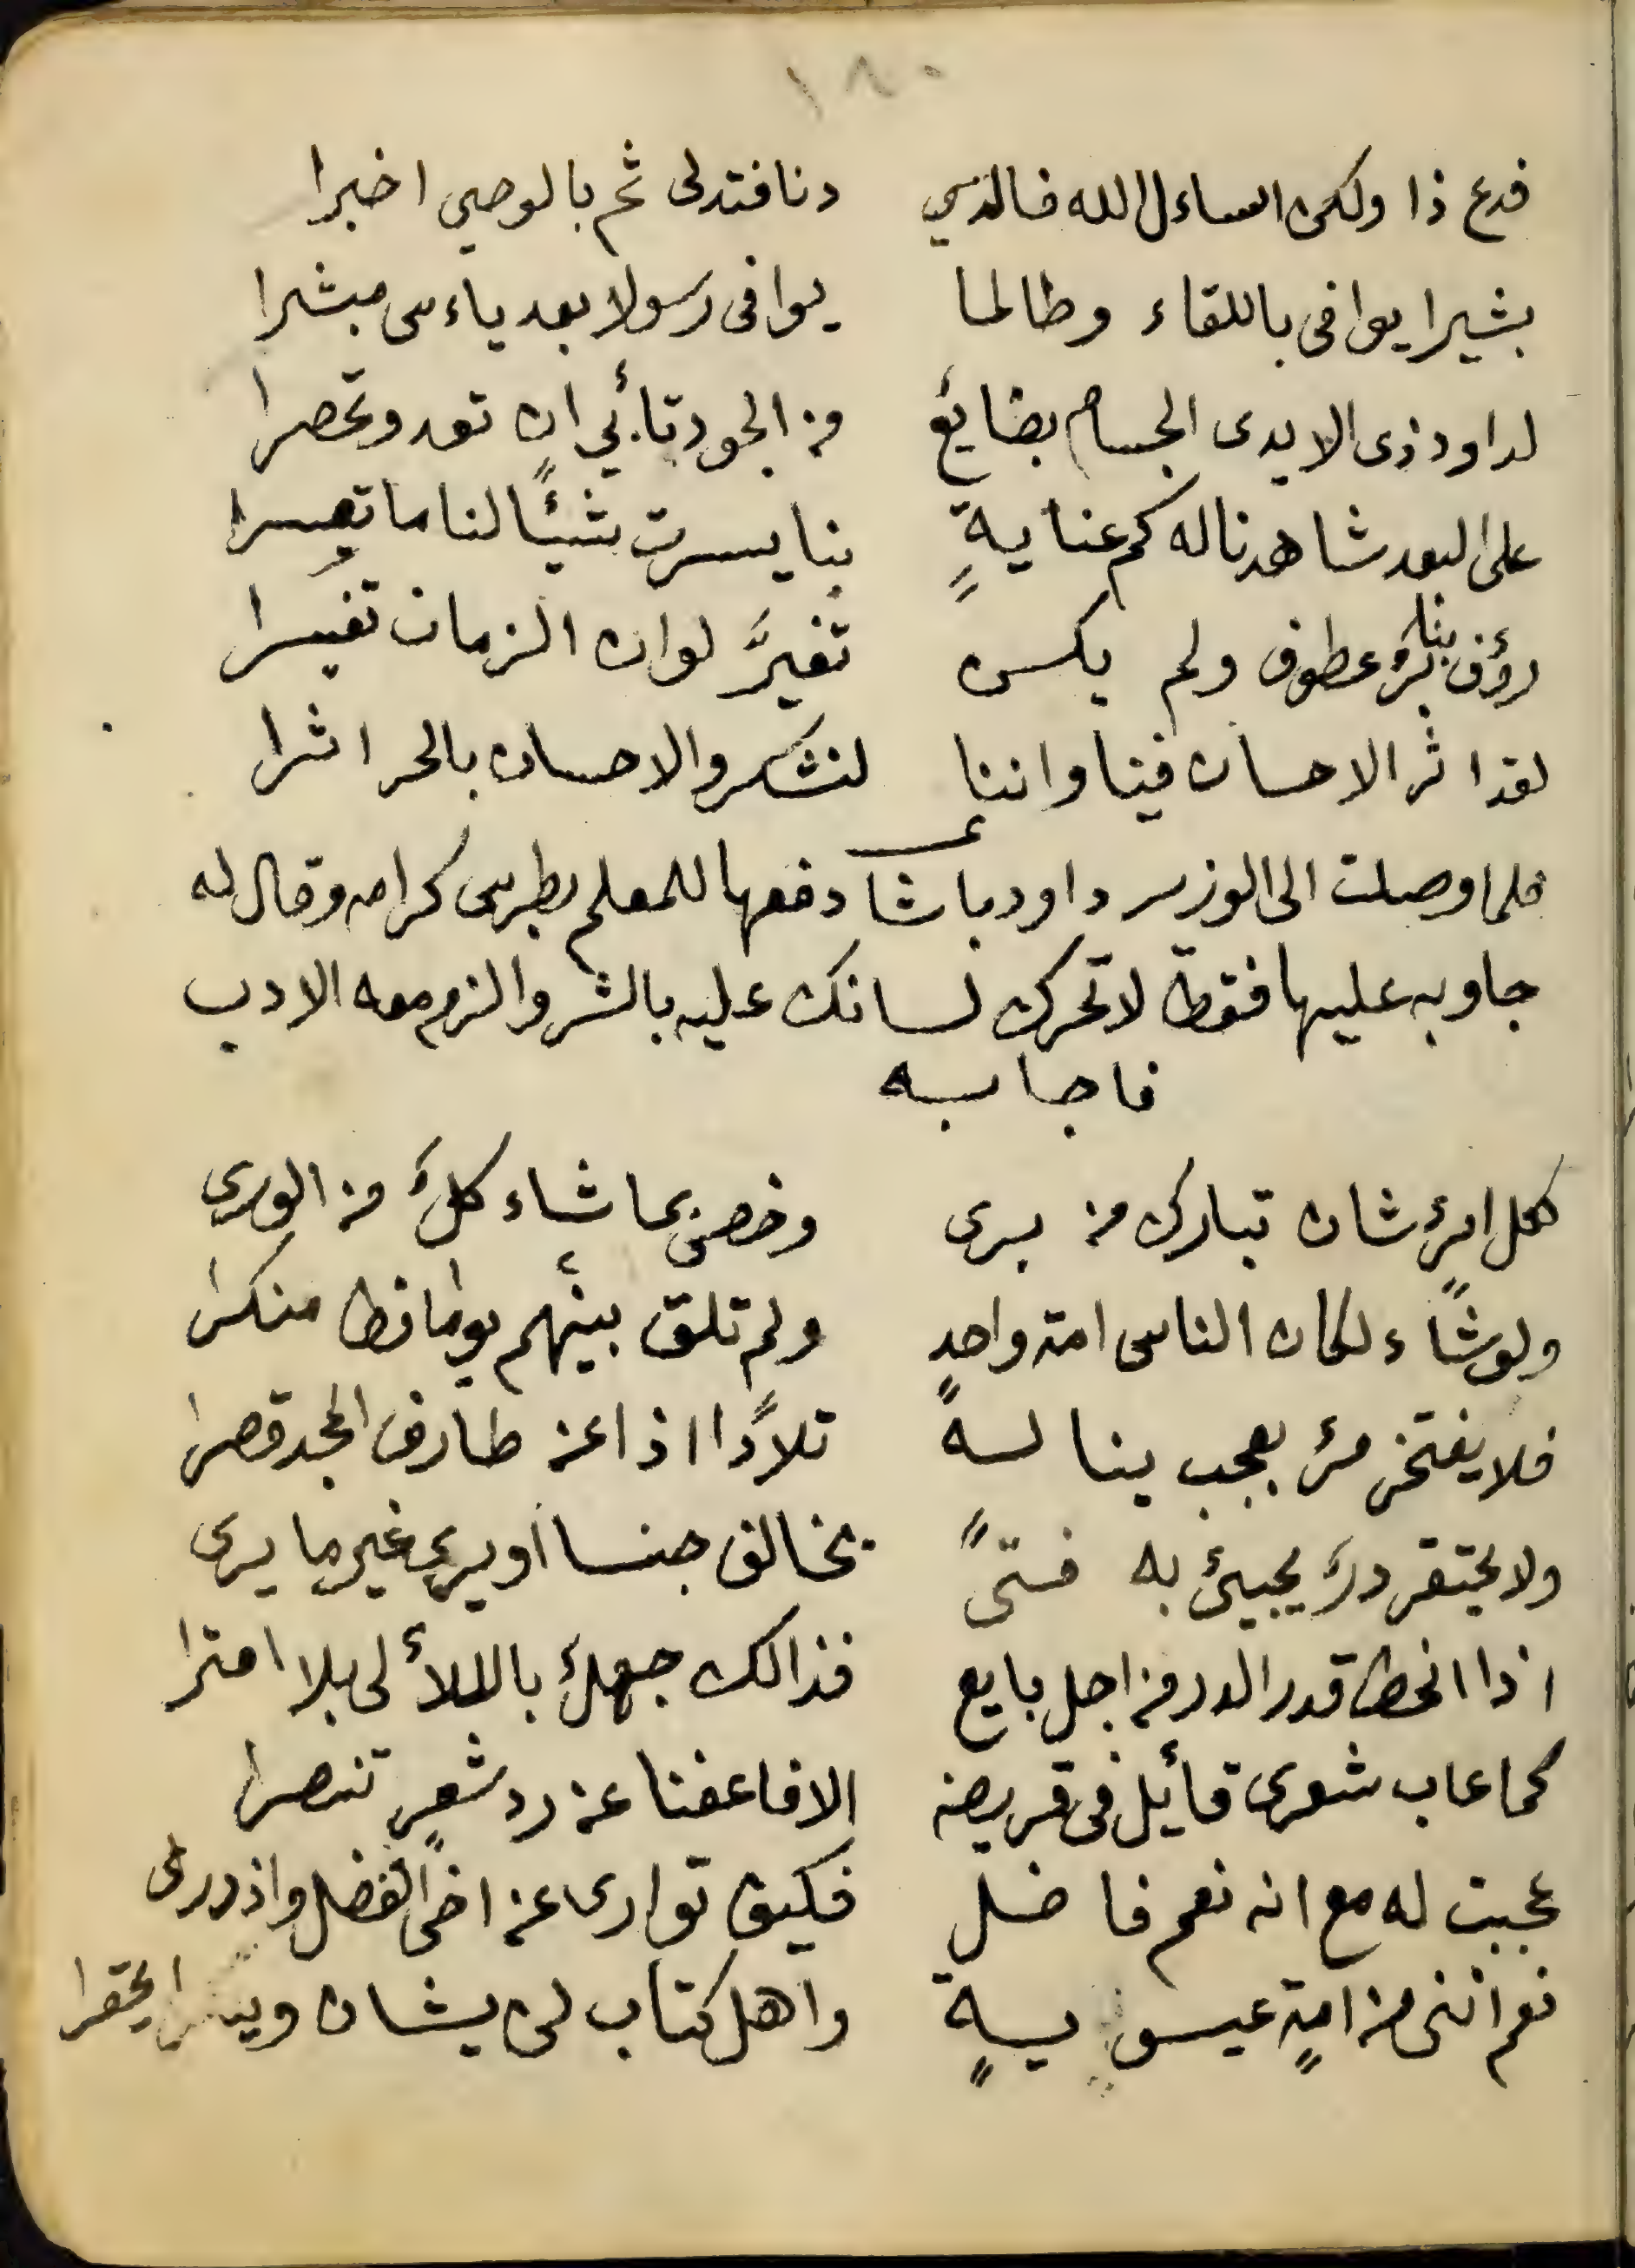 ١٨٠
فدع ذا ولكن اساءل الله فالذي دنا فتدلى ثم بالوحي اخبرا
بشيرا يوافى باللقاء وطالما يوافى رسولا بعد ياءس مبشرا
لداود ذى الايدى الجسام بضائع من الجود تأبي ان تعد وتحصرا
على البعد شاهدنا له كم عنايةٍ بنا يسرت شيئًا لنا ما تعسرا
رؤف بنا برٌ عطوف ولم يكن تغيرَّ لوان الزمان تغيرا
لقد اثر الاحسان فينا واننا لنشكر والاحسان بالحر اثرا
فلما وصلت الى الوزير داود باشا دفعها للمعلم بطرس كرامه وقال له
جاوبه عليها فقط لا تحرك لسانك عليه بالشر والزم معه الادب
فاجابه
لكل امرء شان تبارك من برى وخص بما شاء كلٌ من الورى
ولو شاءً لكان الناس امة واحدٍ ولم تلق بينهم يوما قط منكرا
فلا يفتخر مرء بعجب ينالهً تلادًا اذا عن طارف المجد قصرا
ولا يحتقر درٌ يجيئ به فتىً يخالف جنسا او يرى غير ما يرى
اذا انحط قدر الدر من اجل بايع فذالك جهلٌ بالللألى بلا امترا
كما عاب شعرى قائل فى قريضه الا فاعفنا عن رد شعرٍ تنصرا
عجبت له مع انه نعم فاضل فكيف توارى عن اخى الفضل وازدرى
نعم اننى من امةٍ عيسويةٍ واهل كتاب لن يشان ويحقرا